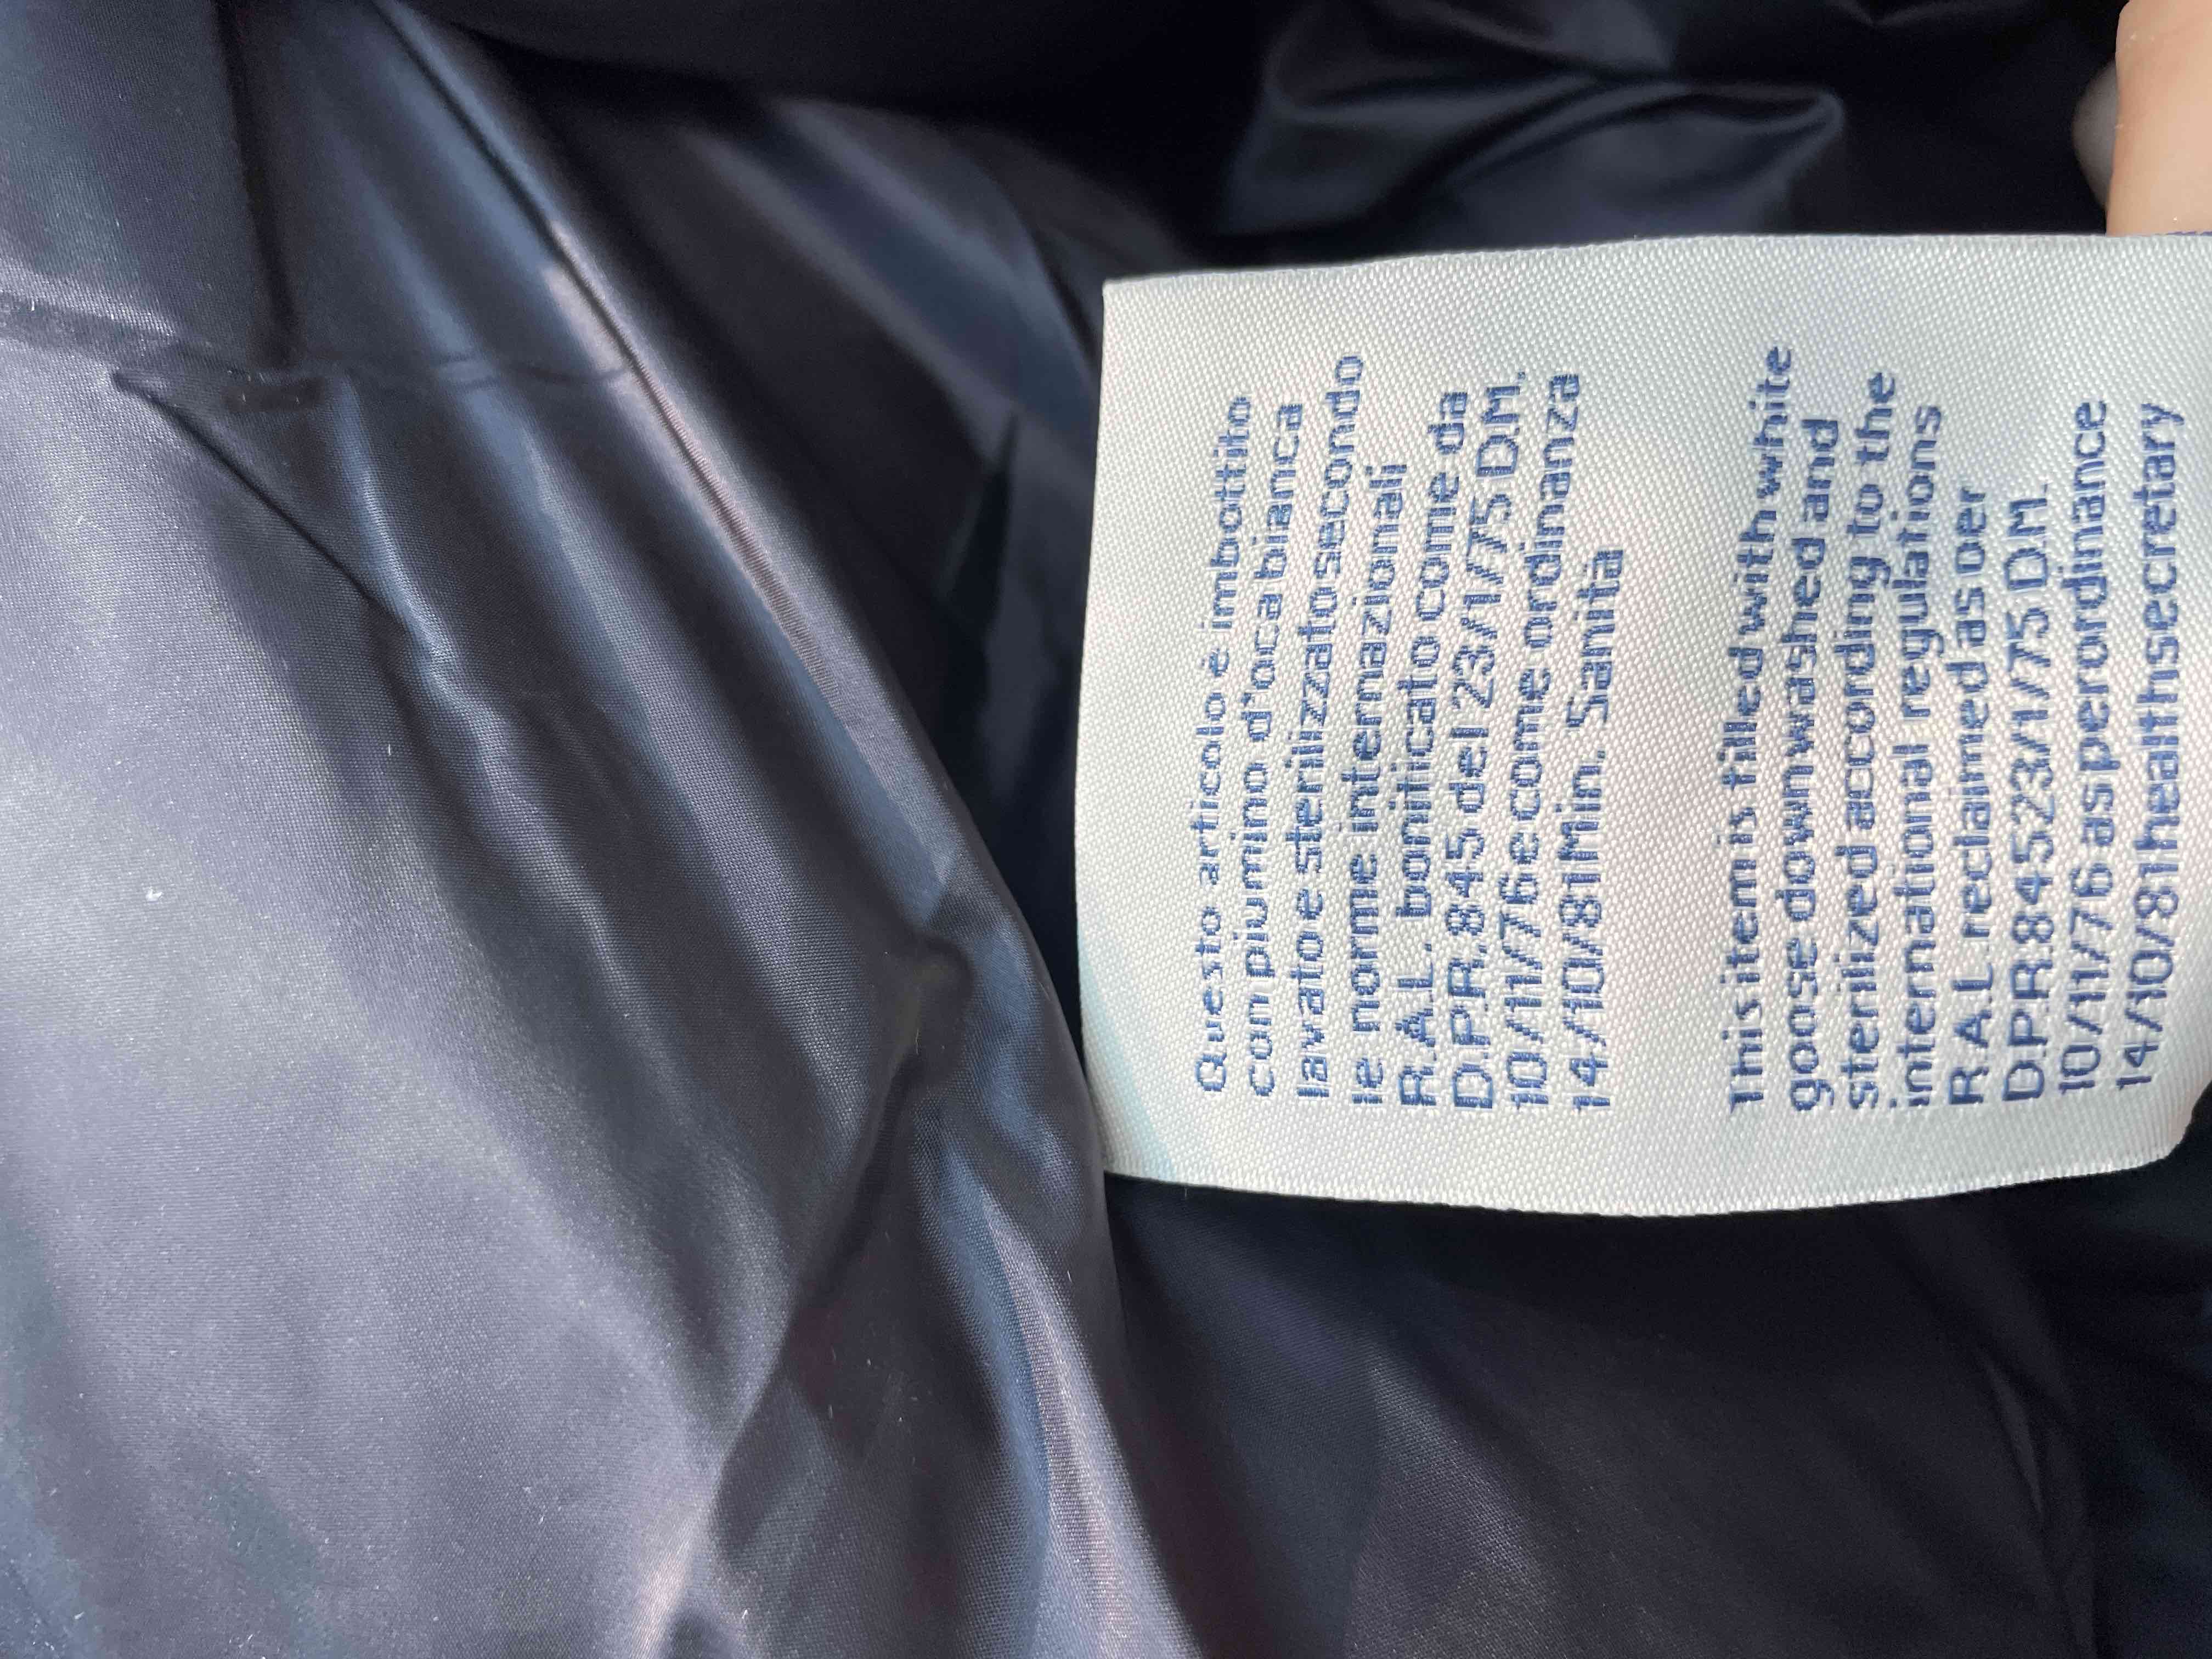 Questo articolo è imbottito
con piumino d'oca bianca
lavato e sterilizzato secondo
le norme internazionali
R.A.L. bonificato come da
D.P.R. 845 del 23/1/75 D.M.
10/11/76 e come ordinanza
14/10/81 Min. Sanità
This item is filled with white
goose down washed and
sterilized according to the
international regulations
R.A.L reclaimed as per
D.P.R.845 23/1/75 D.M.
10/11/76 as per ordinance
14/10/81 health secretary